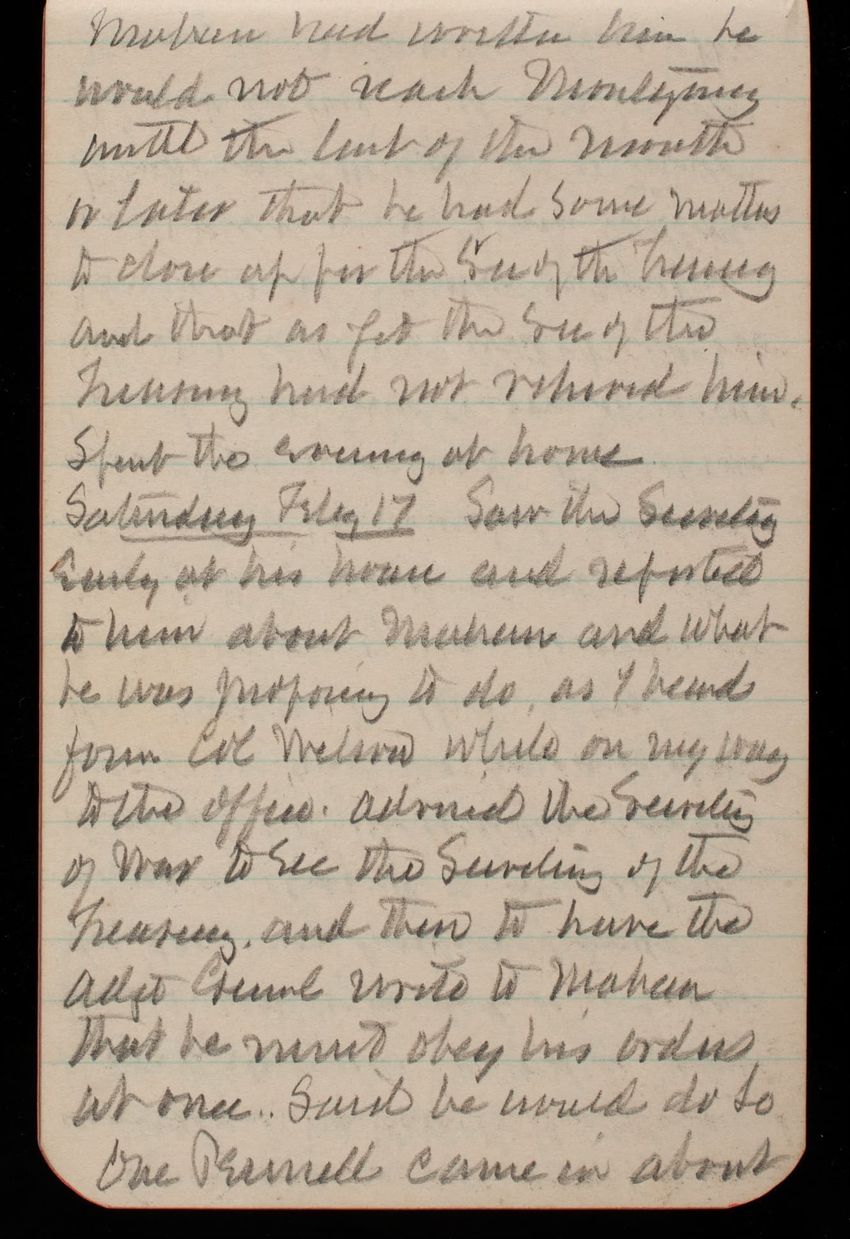 Mahan had written him he
would not reach Montgomery
until the last of the month
or later that he had some matters
to close up for the Sec of the Treasury
and that as yet the Sec of the
Treasury had not relieved him.
Spent the evening at home
Saturday Feby 17 Saw the Secretary
Early at his home and reported
to him about Mahan and what
he was proposing to do, as I heard
from Col Nelson while on my way
to the office. Advised the Secretary
of War to See the Secretary of the
Treasury, and then to have the
Adjt Genrl write to Mahan
that he must obey his orders
at once.. Said he would do so
One came in about